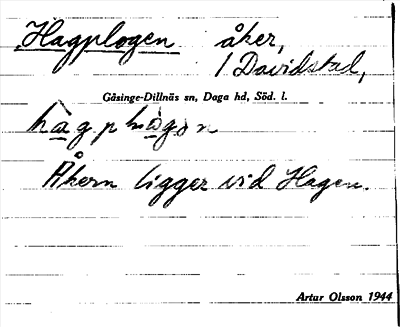 Hagplogen åker,
1 Davidstad,
Gåsinge-Dillnäs sn, Daga hd, Söd. l.
Åkern ligger vid Hagen.
Artur Olsson 1944